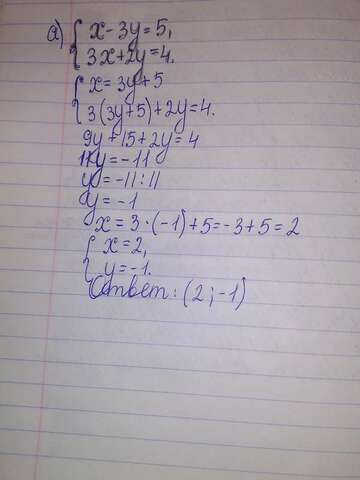 а) { x - 3y = 5,
3x + 2y = 4.
{ x = 3y + 5
3(3y + 5) + 2y = 4.
9y + 15 + 2y = 4
11y = -11
y = -11 : 11
y = -1
x = 3 · (-1) + 5 = -3 + 5 = 2
{ x = 2,
y = -1.
Ответ: (2 ; -1)